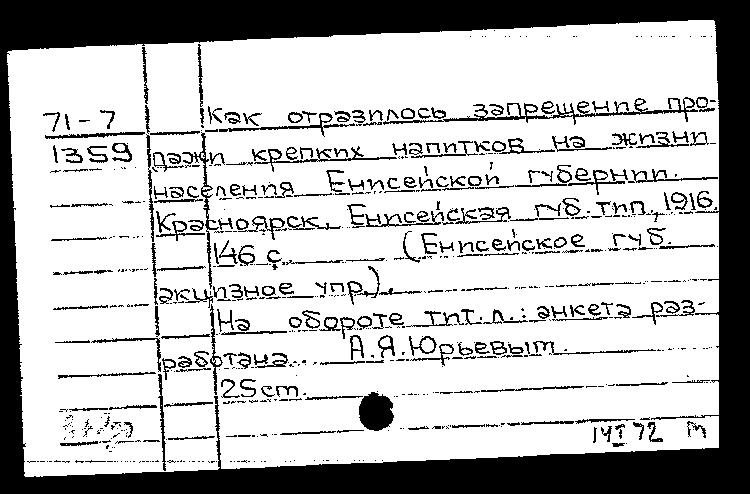 71-7 Как отразилось запрещение про-
1359 дажи крепких напитков на жизни
населения Енисейской губернии.
Красноярск, Енисейская губ. тип., 1916.
146 с. (Енисейское губ.
акцизное упр.).
На обороте тит. л.: анкета раз-
работана.. А.Я.Юрьевым.
25 cm.
14 I 72 m